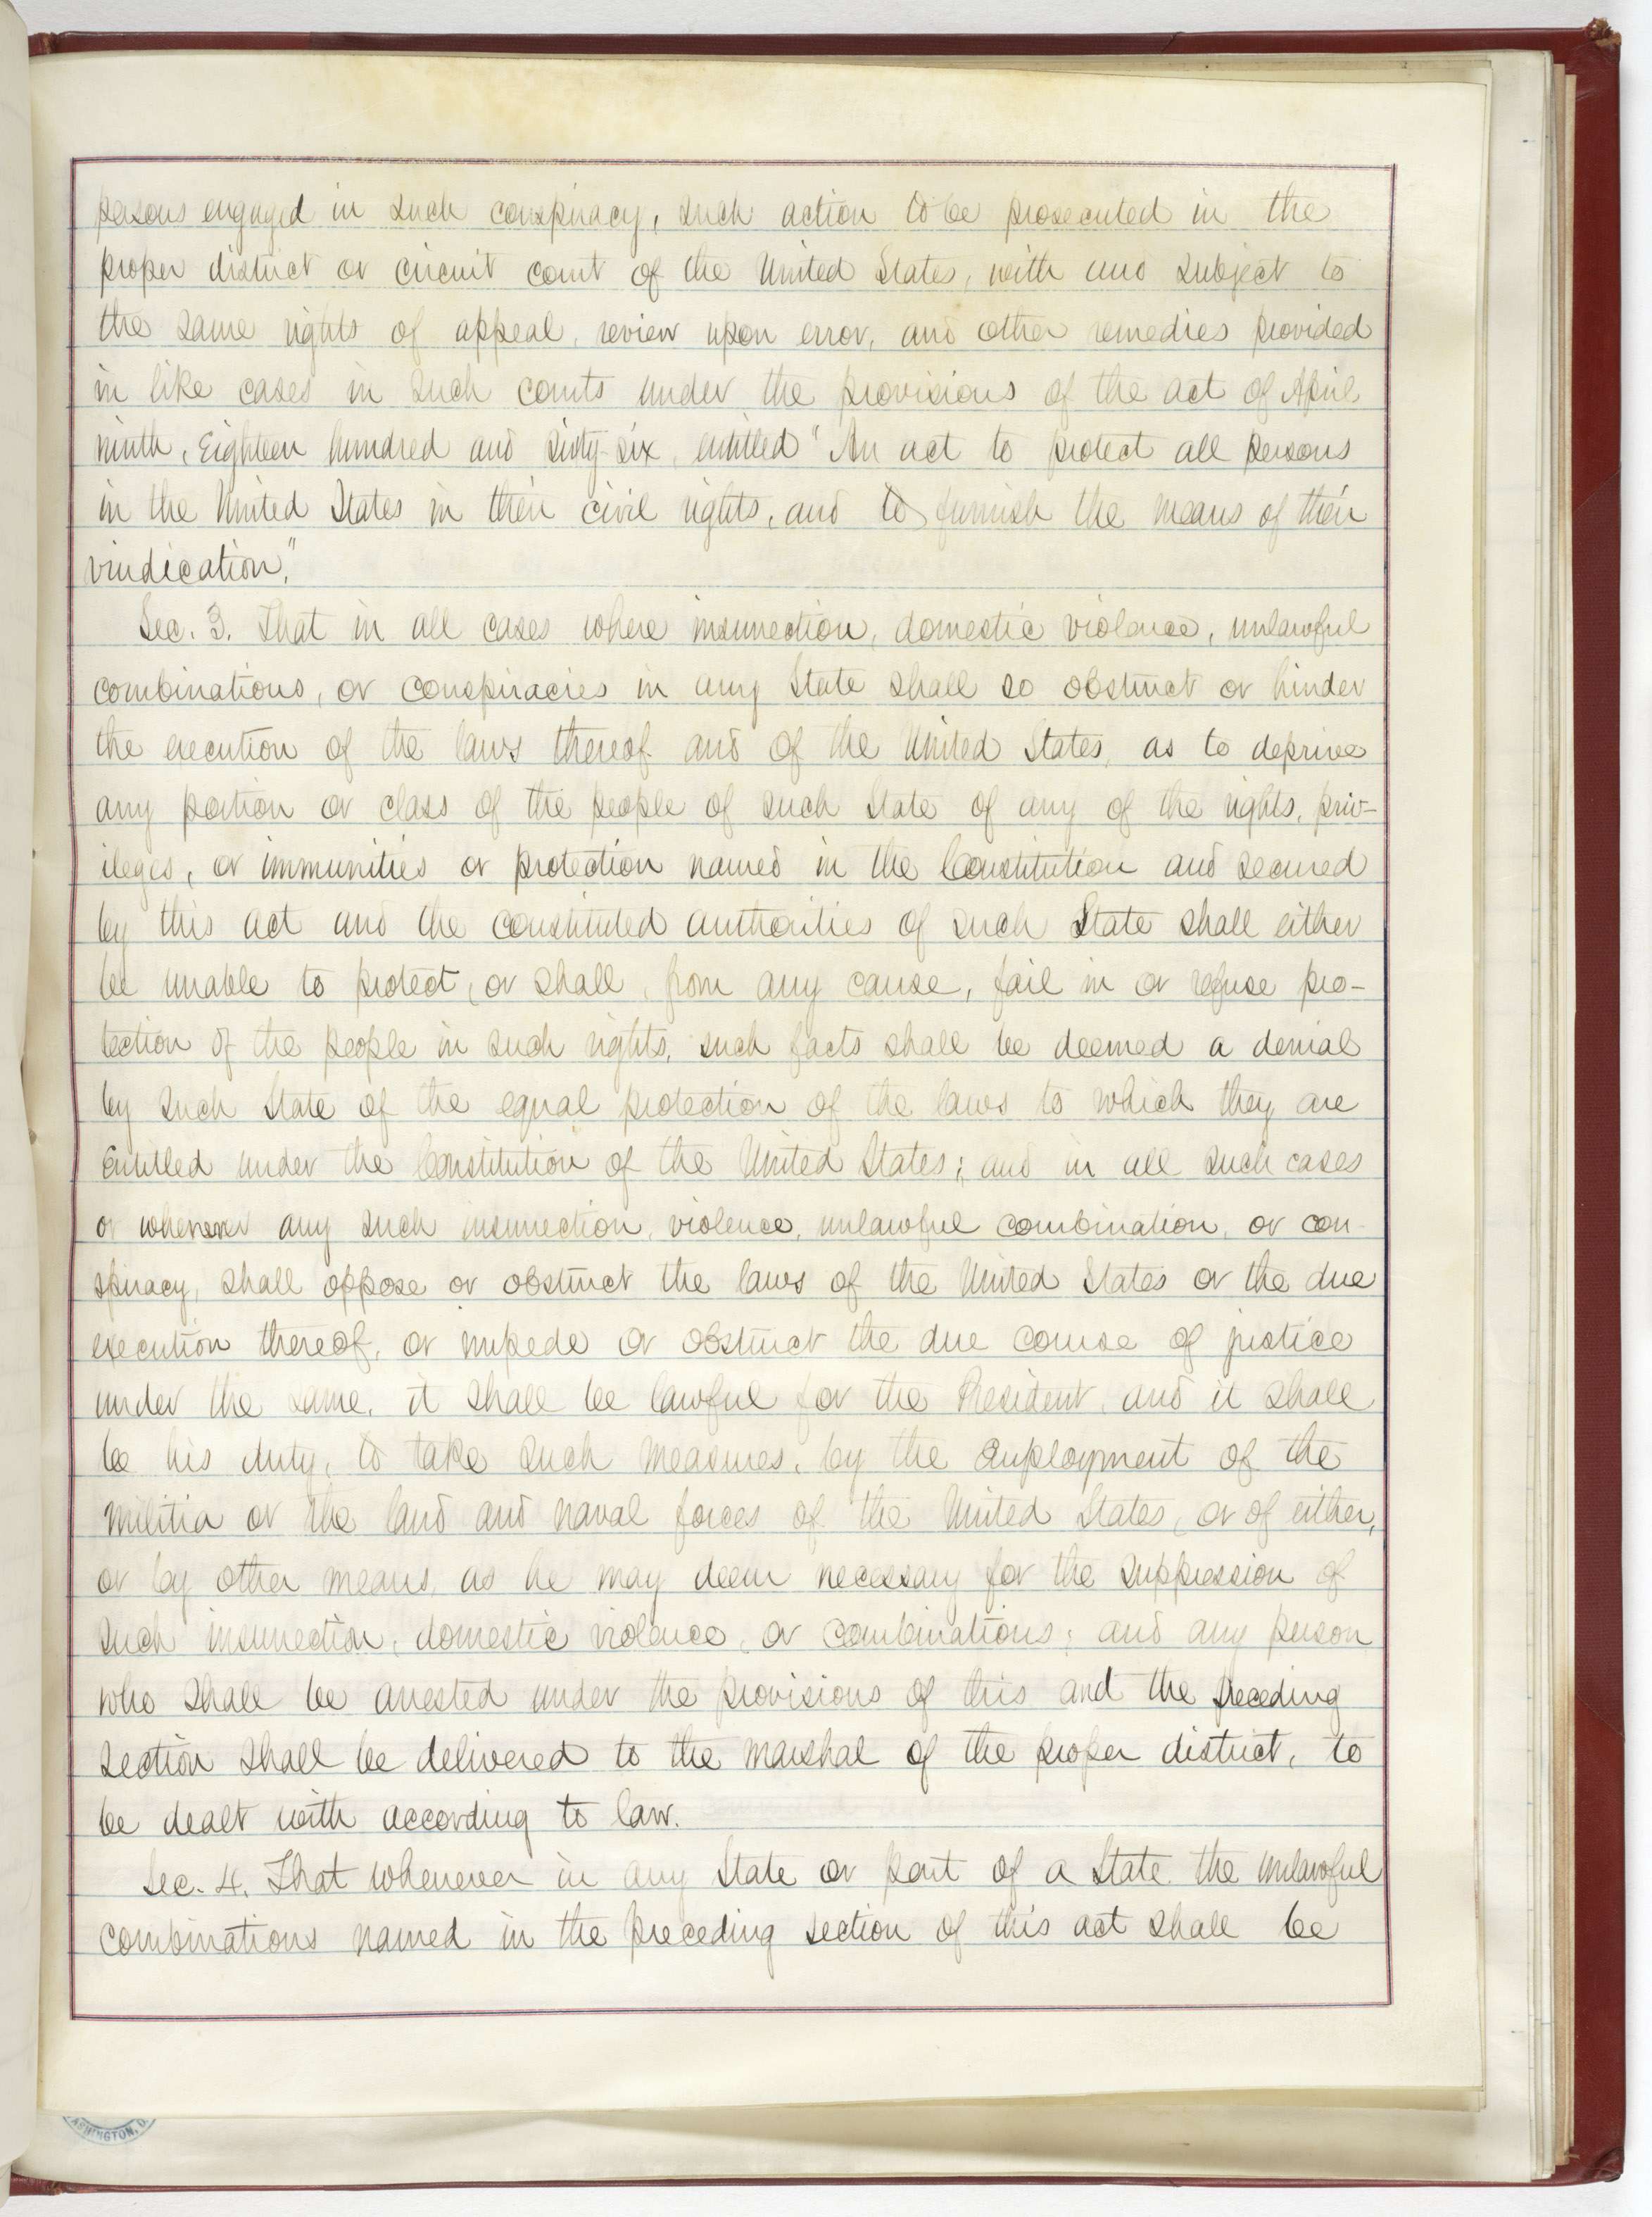 persons engaged in such conspiracy, such action to be prosecuted in the
proper district or circuit court of the United States, with and subject to
the same rights of appeal, review upon error, and other remedies provided
in like cases in such courts under the provisions of the act of April
ninth, Eighteen hundred and sixty-six, entitled "An act to protect all persons
in the United States in their civil rights, and to furnish the means of their
vindication."
Sec. 3. That in all cases where insurrection, domestic violence, unlawful
combinations, or conspiracies in any State shall so obstruct or hinder
the execution of the laws thereof and of the United States, as to deprive
any portion or class of the people of such State of any of the rights, priv-
ileges, or immunities or protection named in the Constitution and secured
by this act and the constituted authorities of such State shall either
be unable to protect, or shall, from any cause, fail in or refuse pro-
tection of the people in such rights, such facts shall be deemed a denial
by such State of the equal protection of the laws to which they are
Entitled under the Constitution of the United States; and in all such cases
or whenever any such insurrection, violence, unlawful combination, or con-
spiracy, shall oppose or obstruct the laws of the United States or the due
execution thereof, or impede or obstruct the due course of justice
under the same, it shall be lawful for the President, and it shall
be his duty, to take such measures, by the employment of the
militia or the land and naval forces of the United States, or of either,
or by other means, as he may deem necessary for the suppression of
such insurrection, domestic violence, or combinations; and any person
who shall be arrested under the provisions of this and the preceding
section shall be delivered to the marshal of the proper district, to
be dealt with according to law.
Sec. 4. That whenever in any State or part of a State the unlawful
combinations named in the preceding section of this act shall be
ASHINGTON, D.